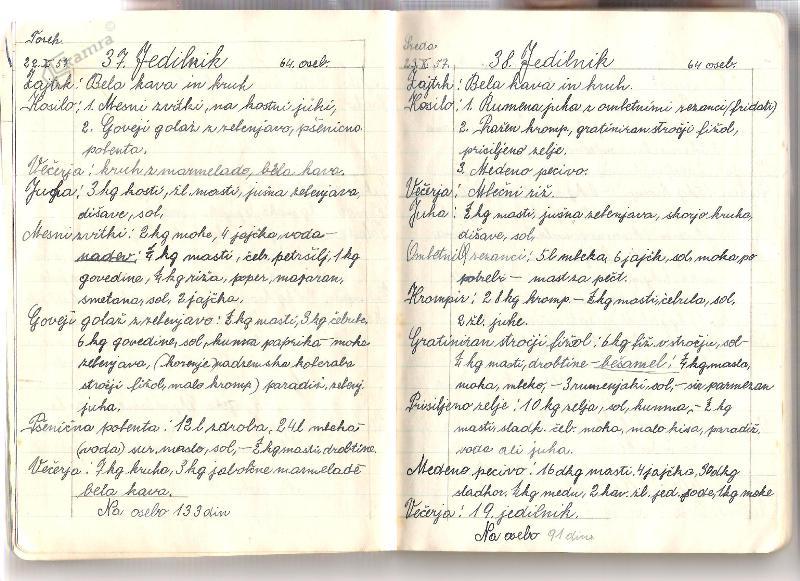 Torek
22.X.57. 37. Jedilnik 64 oseb.
Zajtrk: Bela kava in kruh
Kosilo: 1. Mesni zvitki, na kostni juhi,
2. Goveji golaž z zelenjavo, pšenična
polenta.
Večerja: kruh z marmelado, bela kava.
Juha: 3 kg kosti, žl. masti, jušna zelenjava,
dišave, sol,
Mesni zvitki: 2 kg moke, 4 jajčka, voda-
nadev: ¼ kg masti, čeb. petršilj, 1 kg
govedine, ½ kg riža, poper, majaran,
smetana, sol, 2 jajčka.
Goveji golaž z zelenjavo: ½ kg masti, 3 kg čebule,
6 kg govedine, sol, kumna paprika - moke
zelenjava, (korenje) nadzemska koleraba
stročji fižol, malo kromp.) paradiž, zelenj.
juha.
Pšenična polenta: 12 l zdroba, 24 l mleka
(voda) sur. maslo, sol, - ½ kg masti, drobtine.
Večerja: 7 kg kruha, 3 kg jabolčne marmelade
bela kava.
Na osebo 133 din
Sreda
23.X.57. 38. Jedilnik 64 oseb.
Zajtrk: Bela kava in kruh.
Kosilo: 1. Rumena juha z omletnimi rezanci (fridati)
2. Pražen kromp, gratiniran stročji fižol,
prisiljeno zelje.
3. Medeno pecivo.
Večerja: Mlečni riž.
Juha: ½ kg masti, jušna zelenjava, skorjo kruha,
dišave, sol,
Omletni rezanci: 5 l mleka, 6 jajčk, sol, moka po
potrebi - mast za peč.
Krompir: 28 kg kromp. - ½ kg masti, čebula, sol,
2 žl. juhe.
Gratiniran stročji fižol: 6 kg fiž. v stročju, sol -
¼ kg masti, drobtine - bešamel: ¼ kg masla,
moka, mleko, - 3 rumenjaki, sol, - sir parmezan
Prisiljeno zelje: 10 kg zelja, sol, kumna, - ½ kg
masti, sladk. čeb. moka, malo kisa, paradiž.
voda ali juha.
Medeno pecivo: 16 dkg masti, 4 jajčka, 30 dkg
sladkor, ½ kg medu, 2 kav. žl. jed. sode, 1 kg moke
Večerja: 19. jedilnik.
Na osebo 91 din.
Kamra